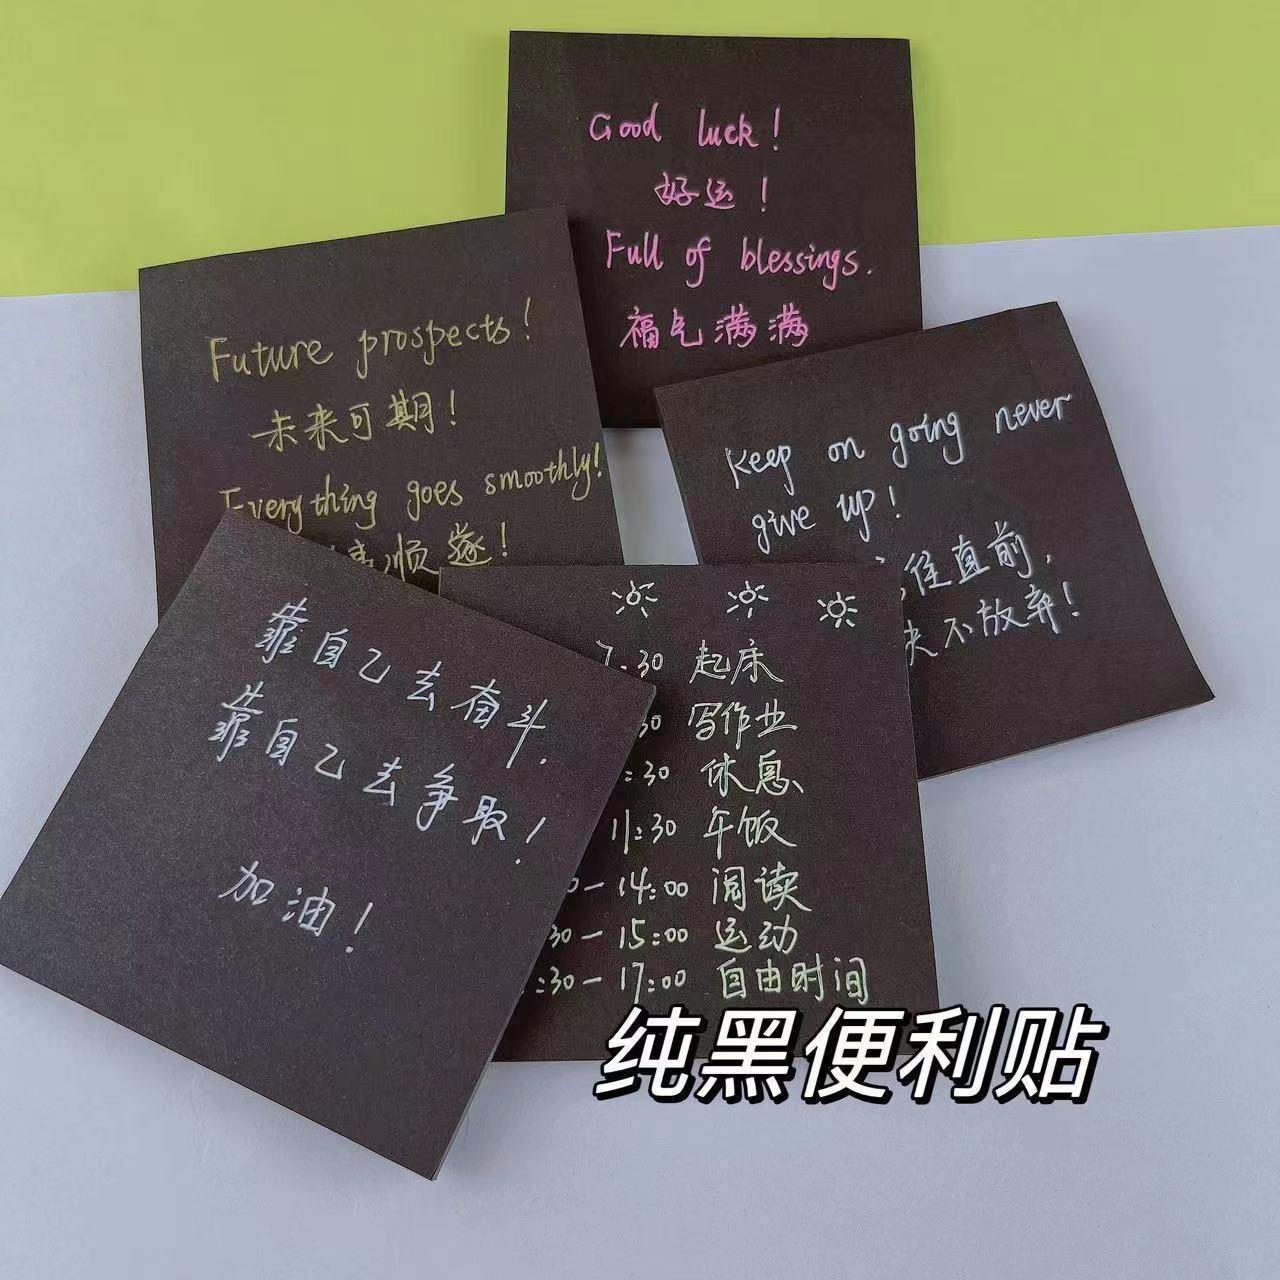 Good luck!
好运!
Full of blessings.
福气满满
Future prospects!
未来可期!
Everything goes smoothly!
顺遂!
Keep on going never
give up!
往直前,
决不放弃!
靠自己去奋斗,
靠自己去争取!
加油!
7:30 起床
30 写作业
:30 休息
11:30 午饭
0-14:00 阅读
30-15:00 运动
:30-17:00 自由时间
纯黑便利贴